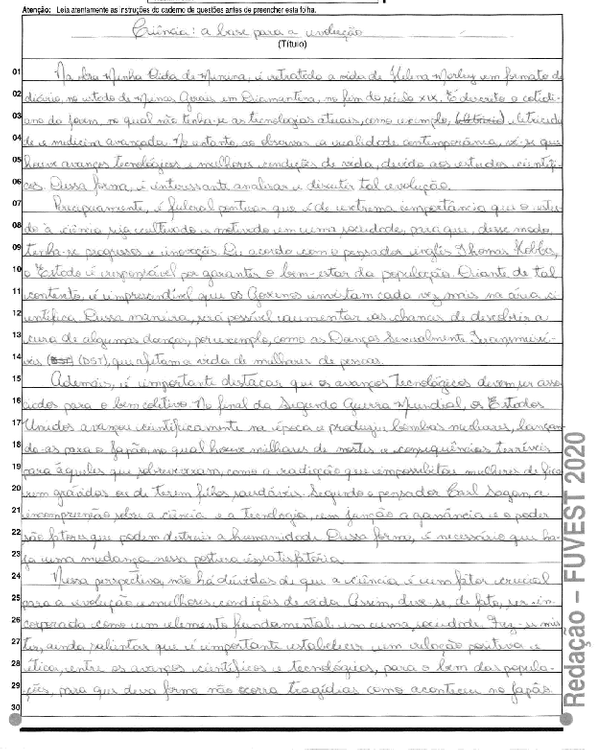 Atenção: Leia atentamente as instruções do caderno de questões antes de preencher esta folha.
Ciência: a base para a evolução
(Título)
01 Na obra Minha Vida de Menina, é retratado a vida de Helena Morley em formato de
02 diário, no estado de Minas Gerais em Diamantina, no fim do século XIX. É descrito o cotidi-
03 ano da jovem, no qual não tinha-se as tecnologias atuais, como exemplo, eletricida-
04 de e medicina avançada. No entanto, ao observar a realidade contemporânea, vê-se que
05 houve avanços tecnológicos e melhores condições de vida, devido aos estudos científi-
06 cos. Dessa forma, é interessante analisar e discutir tal evolução.
07 Precipuamente, é fulcral pontuar que é de extrema importância que o estu-
08 do à ciência seja cultivado e motivado em uma sociedade, para que, desse modo,
09 tenha-se progresso e inovação. De acordo com o pensador inglês Thomas Hobbes,
10 o Estado é responsável por garantir o bem-estar da população. Diante de tal
11 contexto, é imprescindível que os Governos invistam cada vez mais na área ci
12 entífica. Dessa maneira, será possível aumentar as chances de descobrir a
13 cura de algumas doenças, por exemplo, como as Doenças Sexualmente Transmissí-
14 veis (DST), que afetam a vida de milhares de pessoas.
15 Ademais, é importante destacar que os avanços tecnológicos devem ser asso
16 ciados para o bem coletivo. No final da Segunda Guerra Mundial, os Estados
17 Unidos avançou cientificamente na época e produziu bombas nucleares, lançan-
18 do-as para o Japão, no qual houve milhares de mortes e consequências terríveis
19 para àqueles que sobreviveram, como a radiação que impossibilitou mulheres de fica
20 rem grávidas ou de terem filhos saudáveis. Segundo o pensador Carl Sagan, a
21 incompreensão sobre a ciência e a tecnologia, em junção a ganância e o poder
22 são fatores que podem destruir a humanidade. Dessa forma, é necessário que ha-
23 ja uma mudança nessa postura insatisfatória.
24 Nessa perspectiva, não há dúvidas de que a ciência é um fator crucial
25 para a evolução e melhores condições de vida. Assim, deve-se, de fato, ser in-
26 corporada como um elemento fundamental em uma sociedade. Faz-se mis-
27 ter, ainda salientar que é importante estabelecer um relação positiva e
28 ética, entre os avanços científicos e tecnológicos, para o bem das popula-
29 ções, para que dessa forma não ocorra tragédias como aconteceu no Japão.
30
Redação – FUVEST 2020